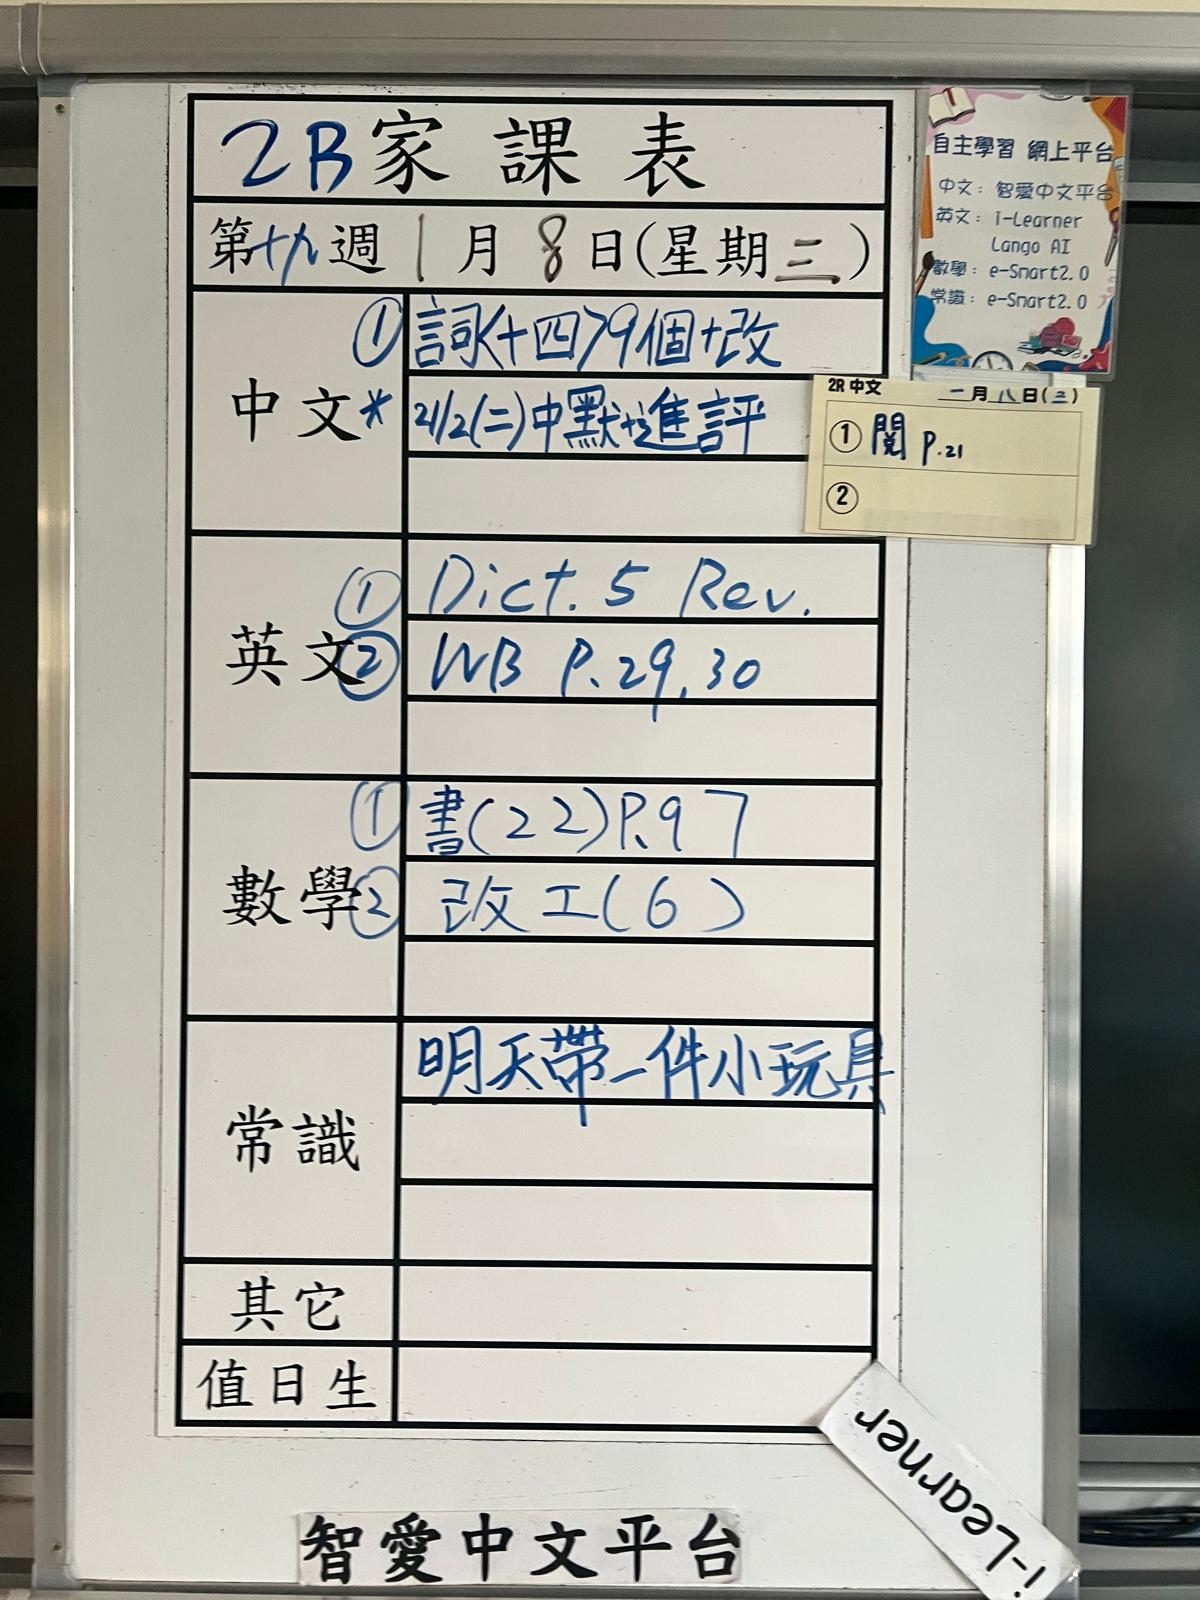 2B家課表
第十九週1月8日(星期三)
中文
①詞<十四>9個+改
*21/2(二)中默+進評
英文
①Dict. 5 Rev.
②WB P.29,30
數學
①書(22)P.97
②改工(6)
常識
明天帶一件小玩具
其它
值日生
自主學習 網上平台
中文：智愛中文平台
英文：i-Learner
Lango AI
數學：e-Smart2.0
常識：e-Smart2.0
2R中文 一月八日(三)
①閱 P.21
②
i-Learner
智愛中文平台